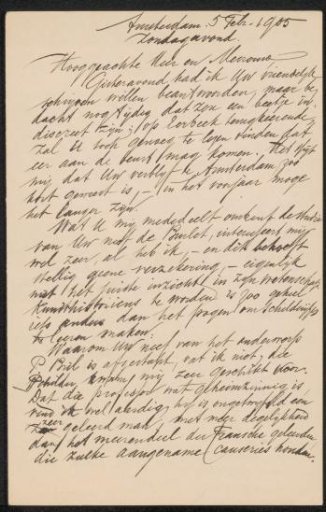 Amsterdam 5 Febr. 1905
Zondagavond.
Hooggeachte Heer en Mevrouw,
Gisteravond had ik Uw vriendelijk
schrijven willen beantwoorden, maar be-
dacht nog tijdig dat zou een beetje in-
discreet zijn; op terugkeerende
zal U toch genoeg te lezen vinden dat
eer aan de beurt mag komen. Het spijt
mij dat Uw verblijf te Amsterdam zoo
kort geweest is, – in het voorjaar moge
het langer zijn.
Wat U mij mededeelt omtrent de studie
van Uw neef de Burlet, interesseert mij
wel zeer, al heb ik, – en dit behoeft
stellig geene verzekering, – eigenlijk
niet het juiste inzicht in zijn wetenschap.
Kunsthistoricus te worden is zoo geheel
iets anders dan het pogen om Schilderijtjes
te leeren maken.
Waarom Uw neef van het onderwerp
P Bril is afgestapt, vat ik niet; die
Schilder, mij zeer geschikt voor.
Dat die professor wat geheimzinnig is
vind ik wel aardig; hij is ongetwijfeld een
zeer geleerd man, met meer degelijkheid
dan het meerendeel der Fransche geleerden
die zulke aangename causeries houden.